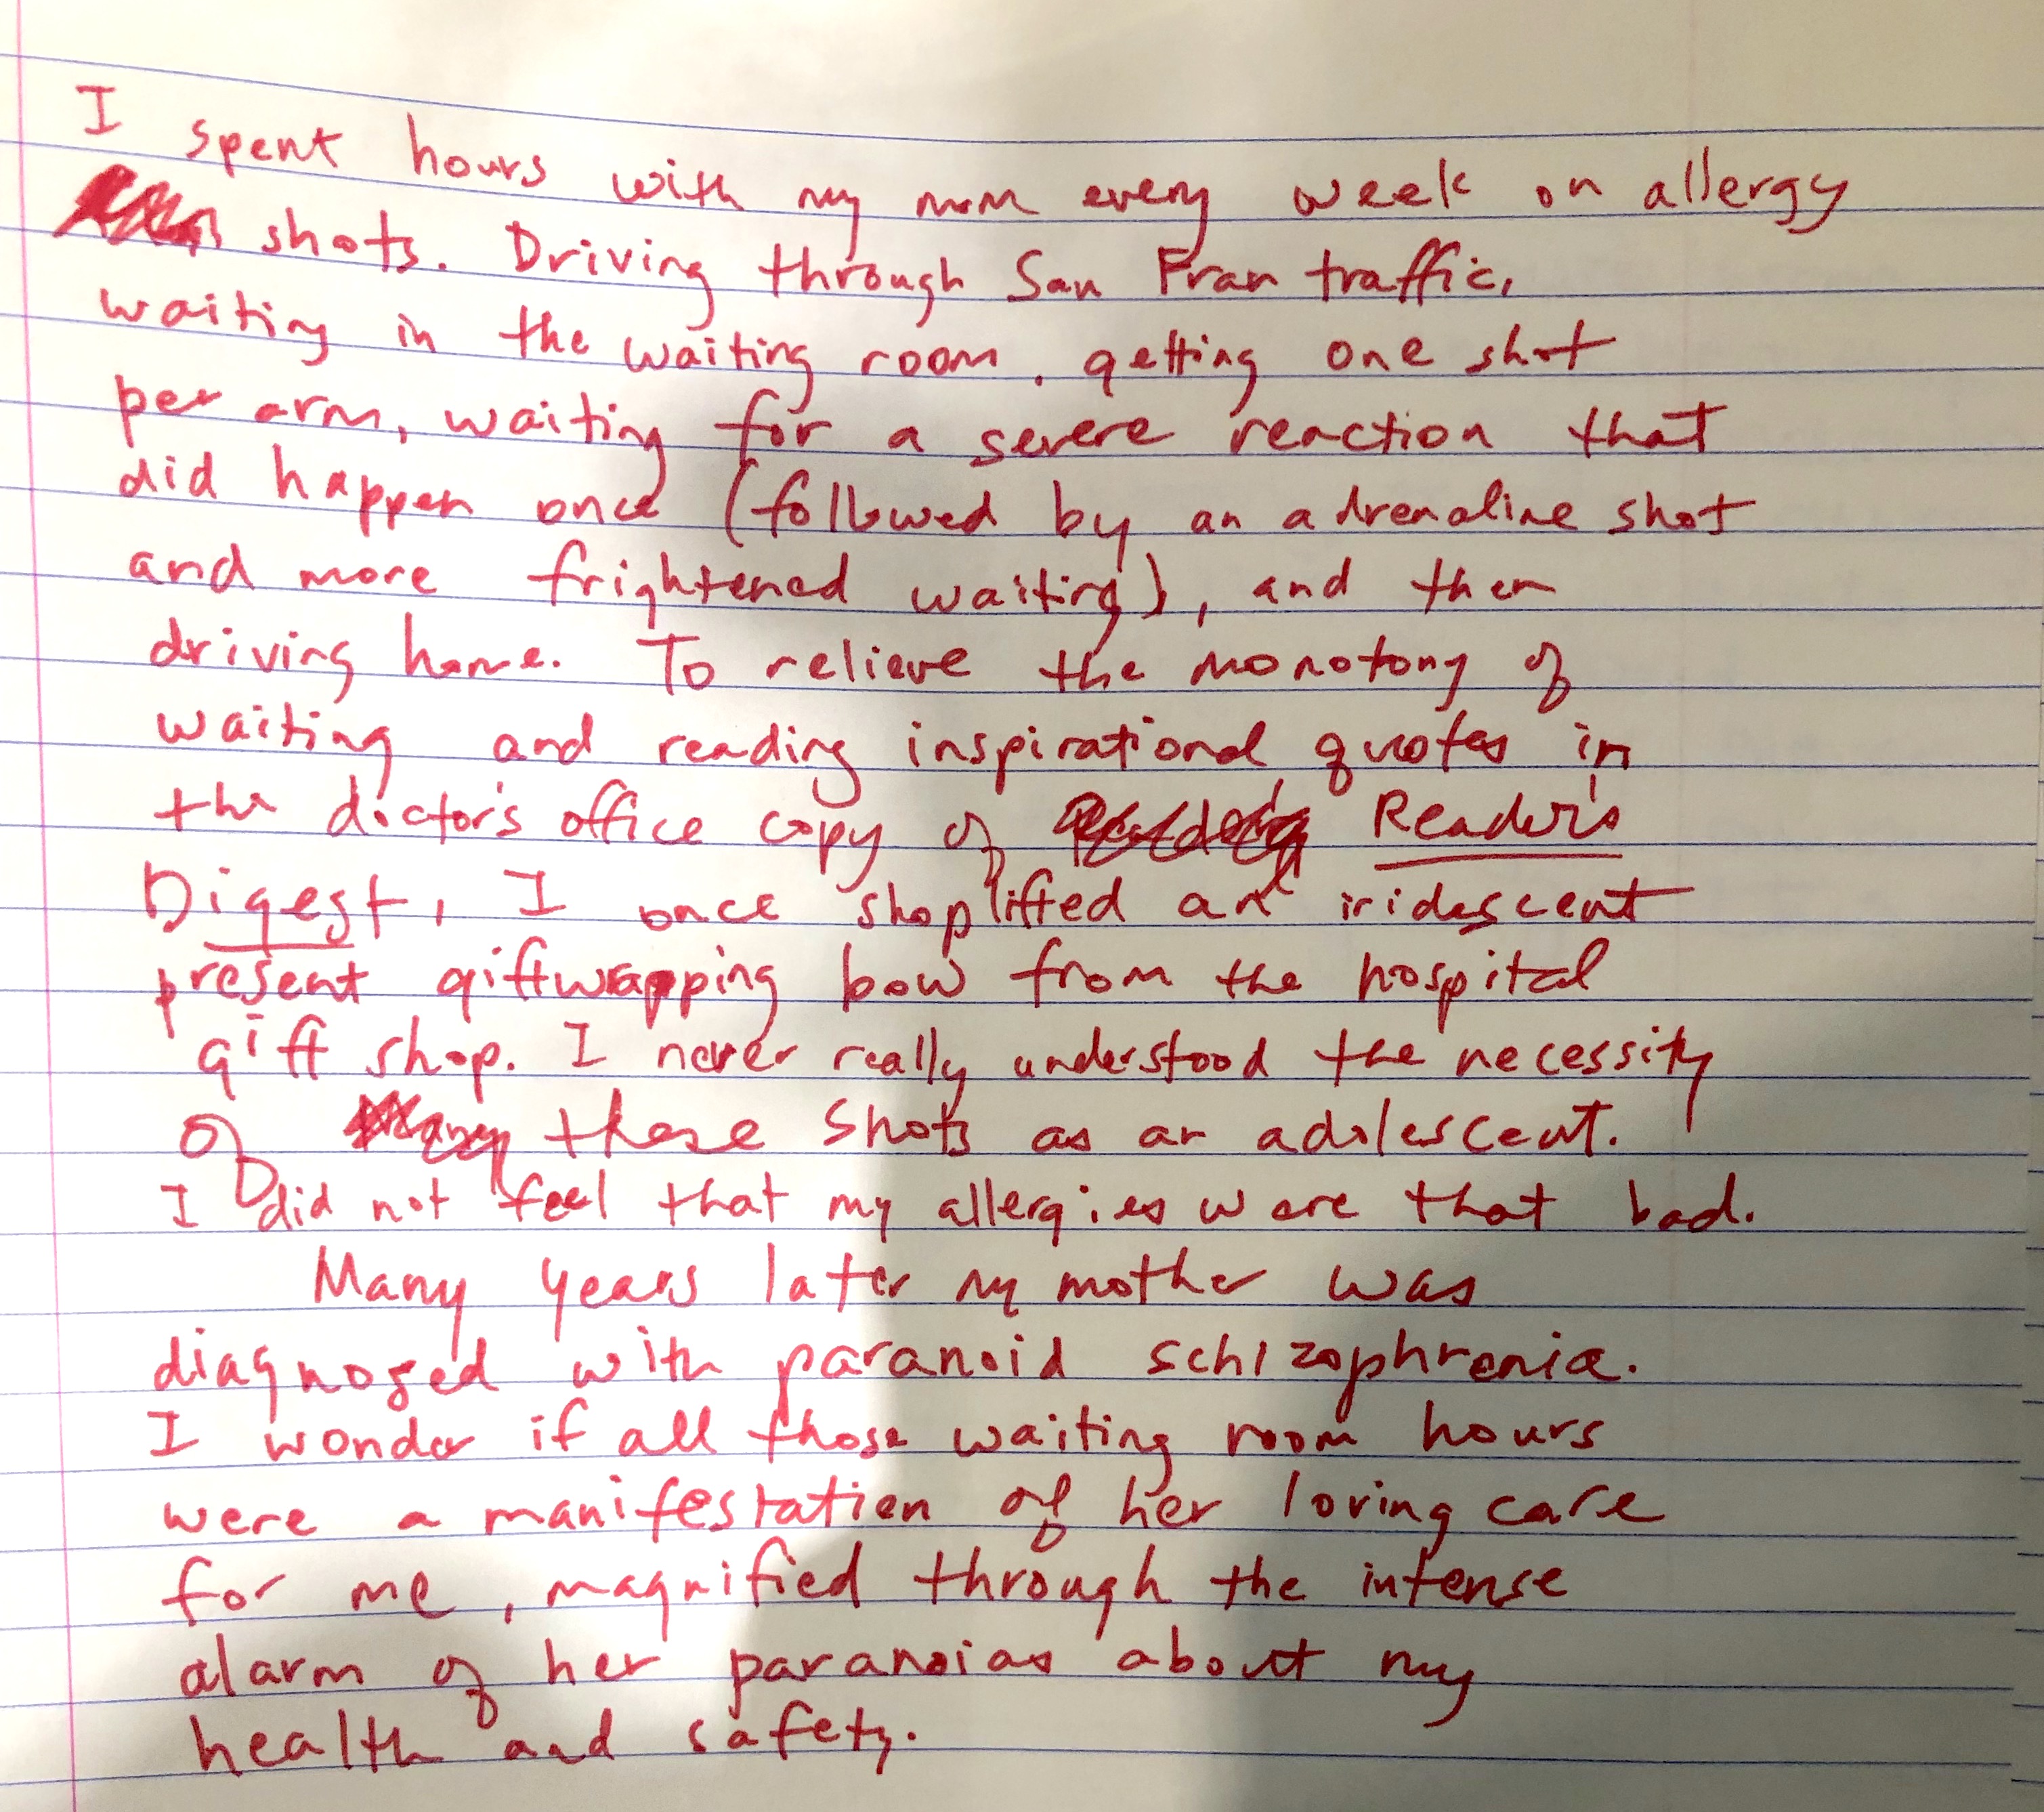 I spent hours with my mom every week on allergy
shots. Driving through San Fran traffic,
waiting in the waiting room, getting one shot
per arm, waiting for a severe reaction that
did happen once (followed by an adrenaline shot
and more frightened waiting), and then
driving home. To relieve the monotony of
waiting and reading inspirational quotes in
the doctor's office copy of Reader's
Digest, I once shoplifted an iridescent
present giftwrapping bow from the hospital
gift shop. I never really understood the necessity
of these shots as an adolescent.
I did not feel that my allergies were that bad.
Many years later my mother was
diagnosed with paranoid schizophrenia.
I wonder if all those waiting room hours
were a manifestation of her loving care
for me, magnified through the intense
alarm of her paranoias about my
health and safety.